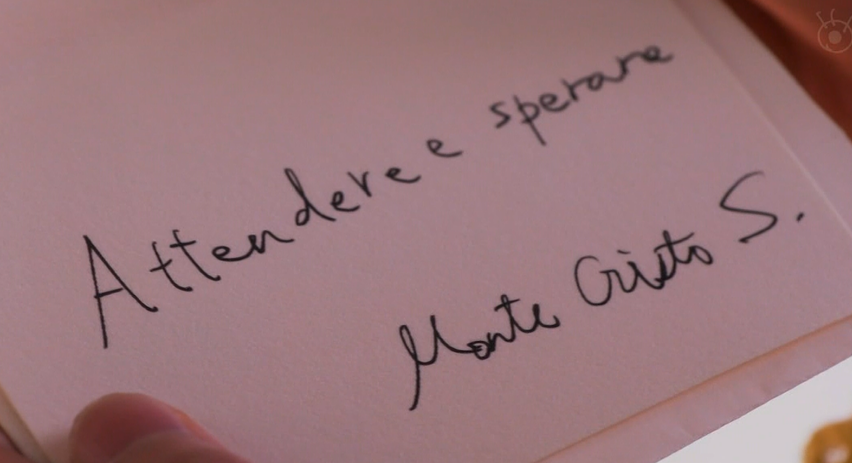 Attendere e sperare
Monte Cristo S.